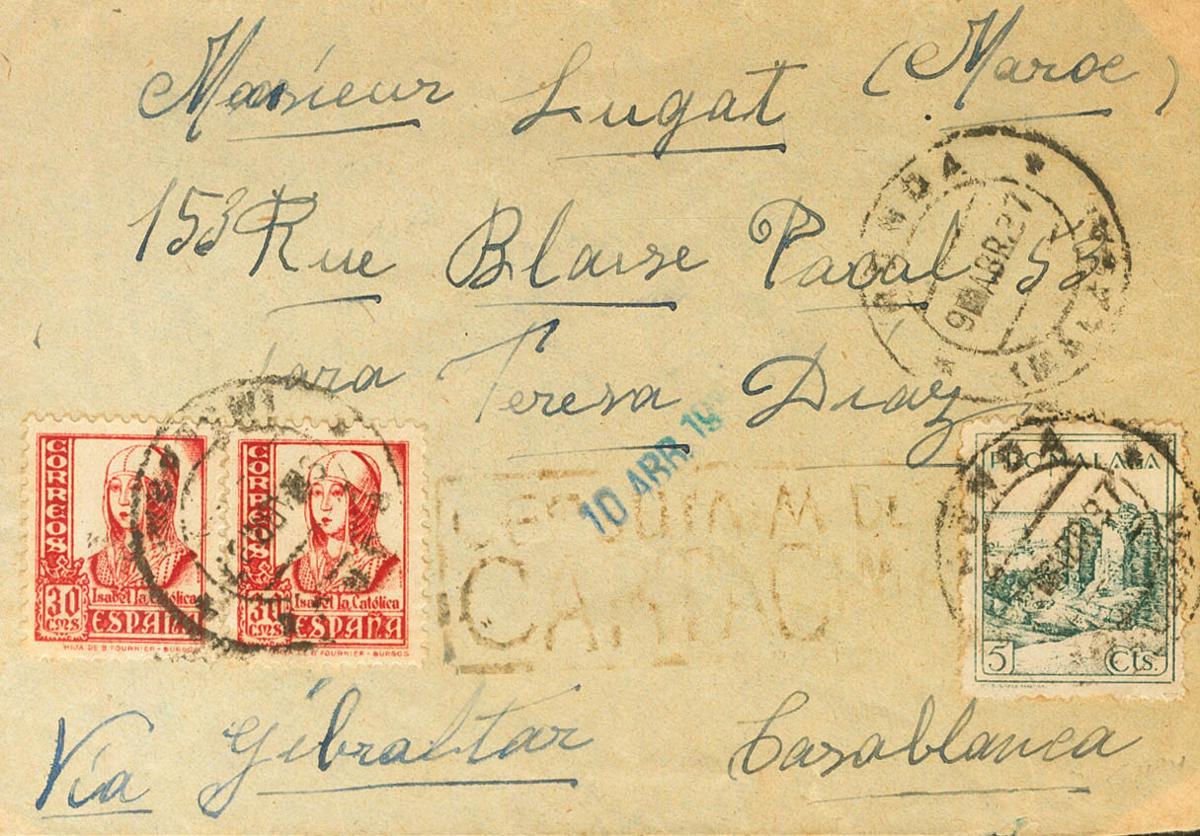 Monsieur Lugat (Maroc)
153 Rue Blaise Pacal 53
Para Teresa Diaz
RONDA
9 ABR.37
(MALAGA)
10 ABR 19
CORREOS
30 CMS
Isabel la Católica
ESPAÑA
HIJA DE B. FOURNIER - BURGOS
CORREOS
30 CMS
Isabel la Católica
ESPAÑA
HIJA DE B. FOURNIER - BURGOS
RONDA
PRO MALAGA
5 Cts.
Via Gibraltar Casablanca